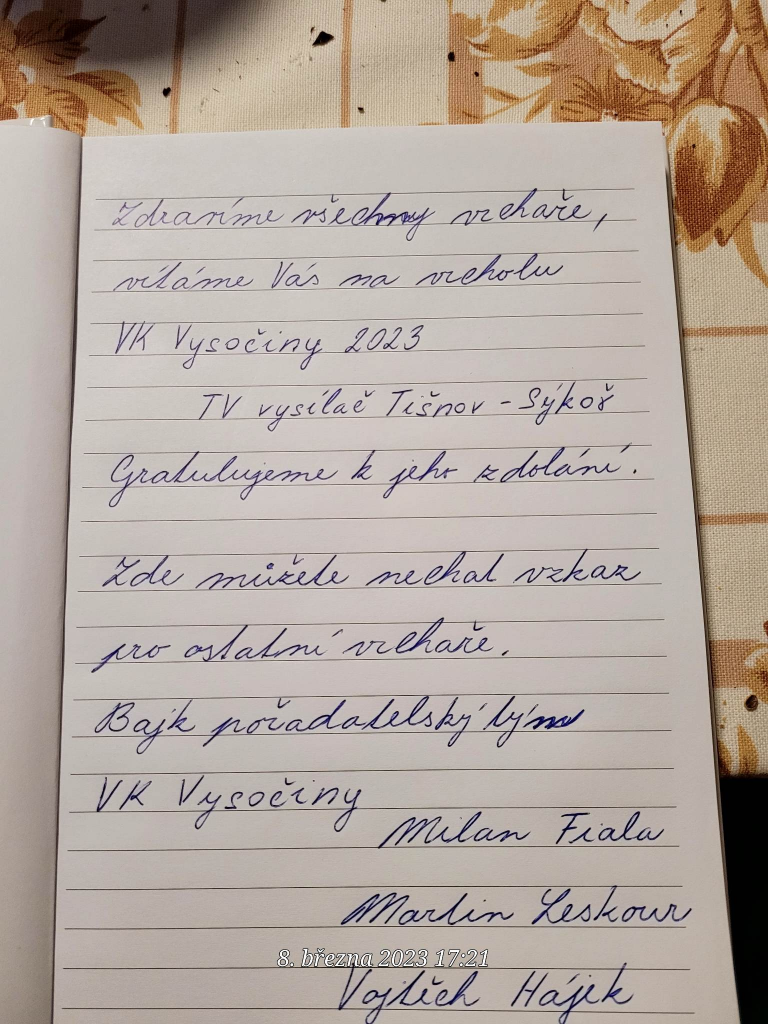 Zdravíme všechny vrchaře,
vítáme Vás na vrcholu
VK Vysočiny 2023
TV vysílač Tišnov - Sýkoř
Gratulujeme k jeho zdolání.
Zde můžete nechat vzkaz
pro ostatní vrchaře.
Bajk pořadatelský tým
VK Vysočiny
Milan Fiala
Martin Leskour
8. března 2023 17:21
Vojtěch Hájek